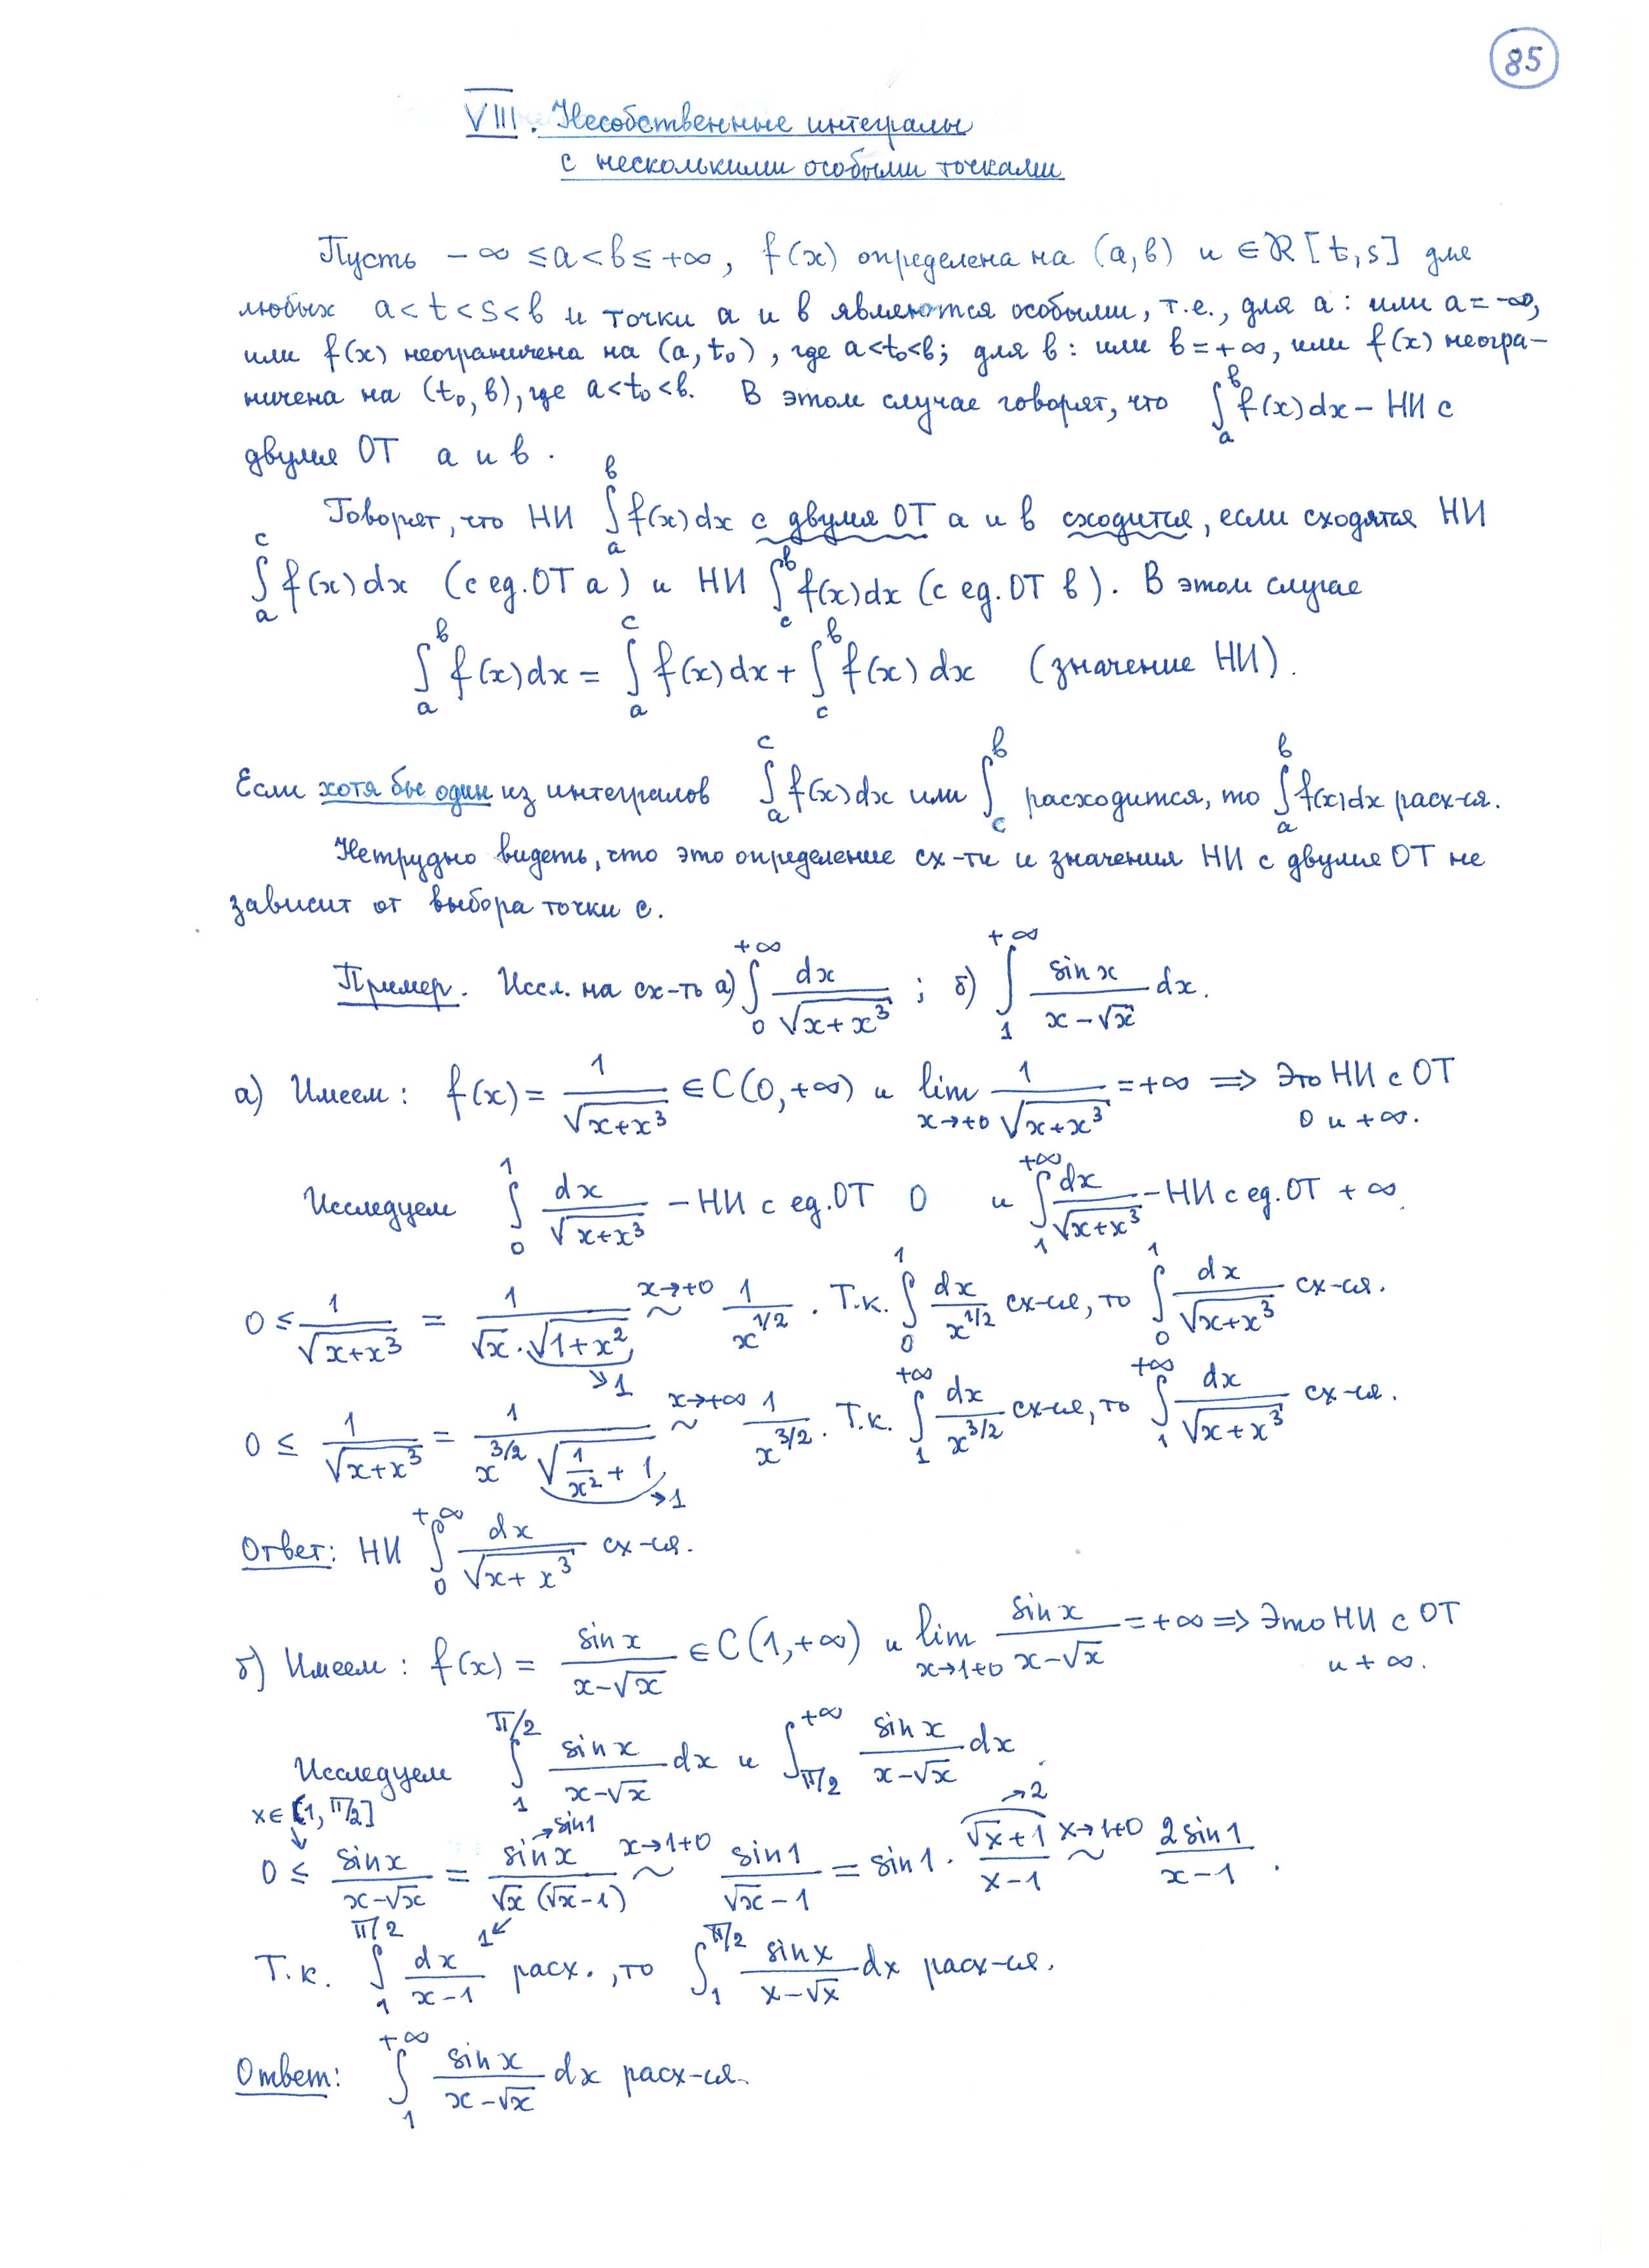 85
VIII. Несобственные интегралы
с несколькими особыми точками
Пусть −∞ ≤ a < b ≤ +∞, f(x) определена на (a, b) и ∈ ℜ[t, s] для
любых a < t < s < b и точки a и b являются особыми, т.е., для a: или a = −∞,
или f(x) неограничена на (a, t₀), где a < t₀ < b; для b: или b = +∞, или f(x) неогра-
ничена на (t₀, b), где a < t₀ < b. В этом случае говорят, что ∫_a^b f(x)dx − НИ с
двумя ОТ a и b.
Говорят, что НИ ∫_a^b f(x)dx с двумя ОТ a и b сходится, если сходятся НИ
∫_a^c f(x)dx (с ед. ОТ a) и НИ ∫_c^b f(x)dx (с ед. ОТ b). В этом случае
∫_a^b f(x)dx = ∫_a^c f(x)dx + ∫_c^b f(x)dx (значение НИ).
Если хотя бы один из интегралов ∫_a^c f(x)dx или ∫_c^b расходится, то ∫_a^b f(x)dx расх-ся.
Нетрудно видеть, что это определение сх-ти и значения НИ с двумя ОТ не
зависит от выбора точки c.
Пример. Иссл. на сх-ть а) ∫_0^{+∞} dx/√(x+x³) ; б) ∫_1^{+∞} sin x/(x−√x) dx.
а) Имеем: f(x) = 1/√(x+x³) ∈ C(0, +∞) и lim_{x→+0} 1/√(x+x³) = +∞ ⇒ Это НИ с ОТ
0 и +∞.
Исследуем ∫_0^1 dx/√(x+x³) − НИ с ед. ОТ 0 и ∫_1^{+∞} dx/√(x+x³) − НИ с ед. ОТ +∞.
0 ≤ 1/√(x+x³) = 1/(√x·√(1+x²)) [→1] ~ (x→+0) 1/x^{1/2}. Т.к. ∫_0^1 dx/x^{1/2} сх-ся, то ∫_0^1 dx/√(x+x³) сх-ся.
0 ≤ 1/√(x+x³) = 1/(x^{3/2} √(1/x²+1)) [→1] ~ (x→+∞) 1/x^{3/2}. Т.к. ∫_1^{+∞} dx/x^{3/2} сх-ся, то ∫_1^{+∞} dx/√(x+x³) сх-ся.
Ответ: НИ ∫_0^{+∞} dx/√(x+x³) сх-ся.
б) Имеем: f(x) = sin x/(x−√x) ∈ C(1, +∞) и lim_{x→1+0} sin x/(x−√x) = +∞ ⇒ Это НИ с ОТ
и +∞.
Исследуем ∫_1^{π/2} sin x/(x−√x) dx и ∫_{π/2}^{+∞} sin x/(x−√x) dx.
x∈[1, π/2]
0 ≤ sin x/(x−√x) = sin x [→sin 1]/(√x [→1] (√x−1)) ~ (x→1+0) sin 1/(√x−1) = sin 1 · (√x+1) [→2]/(x−1) ~ (x→1+0) 2 sin 1/(x−1).
Т.к. ∫_1^{π/2} dx/(x−1) расх., то ∫_1^{π/2} sin x/(x−√x) dx расх-ся.
Ответ: ∫_1^{+∞} sin x/(x−√x) dx расх-ся.